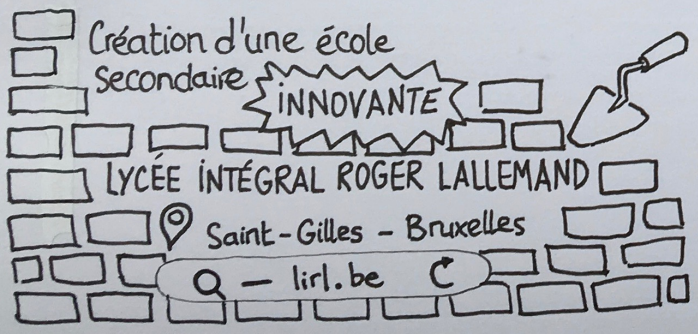 Création d'une école
secondaire iNNOVANTE
LYCÉE iNTÉGRAL ROGER LALLEMAND
Saint-Gilles - Bruxelles
lirl.be